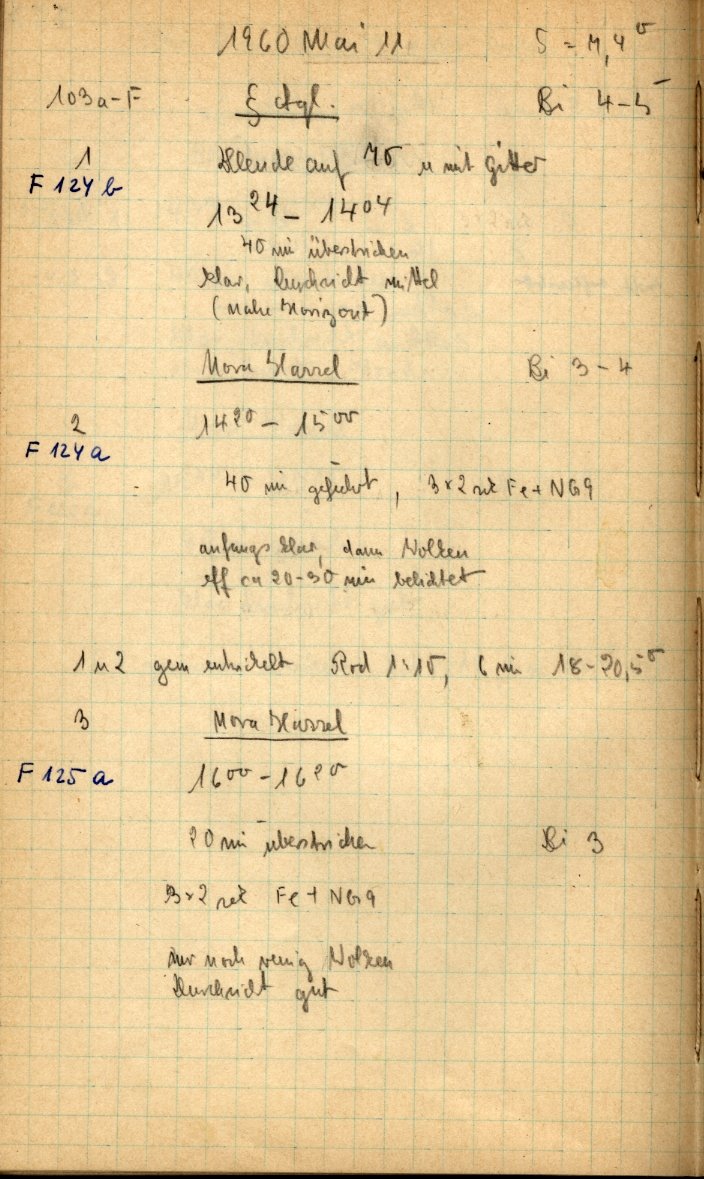 1960 Mai 11 S = 7,4°
103a-F ξ Aql. Bi 4-5
1 Blende auf 70 u mit Gitter
F 124 b
13 24 - 14 04
40 min überstrichen
klar, Durchsicht mittel
(nahe Horizont)
Nova Hassel Bi 3-4
2 14 20 - 15 00
F 124 a
40 min geführt, 3×2 sek Fe + NG9
anfangs klar, dann Wolken
eff ca 20-30 min belichtet
1 u 2 gem entwickelt Rod 1:15, 6 min 18-20,5°
3 Nova Hassel
F 125 a 16 00 - 16 20
20 min überstrichen Bi 3
3×2 sek Fe + NG9
nur noch wenig Wolken
Durchsicht gut